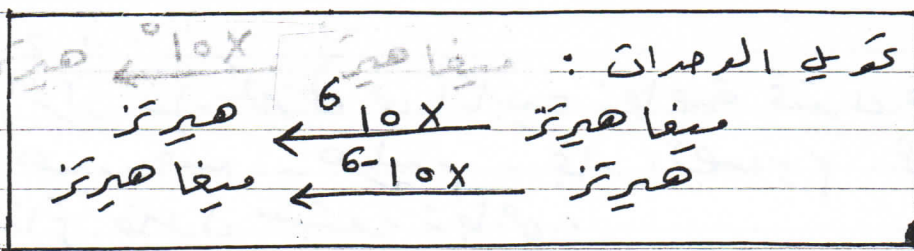 تحويل الوحدات :
ميغا هيرتز ×10⁶ ← هيرتز
هيرتز ×10⁻⁶ ← ميغا هيرتز